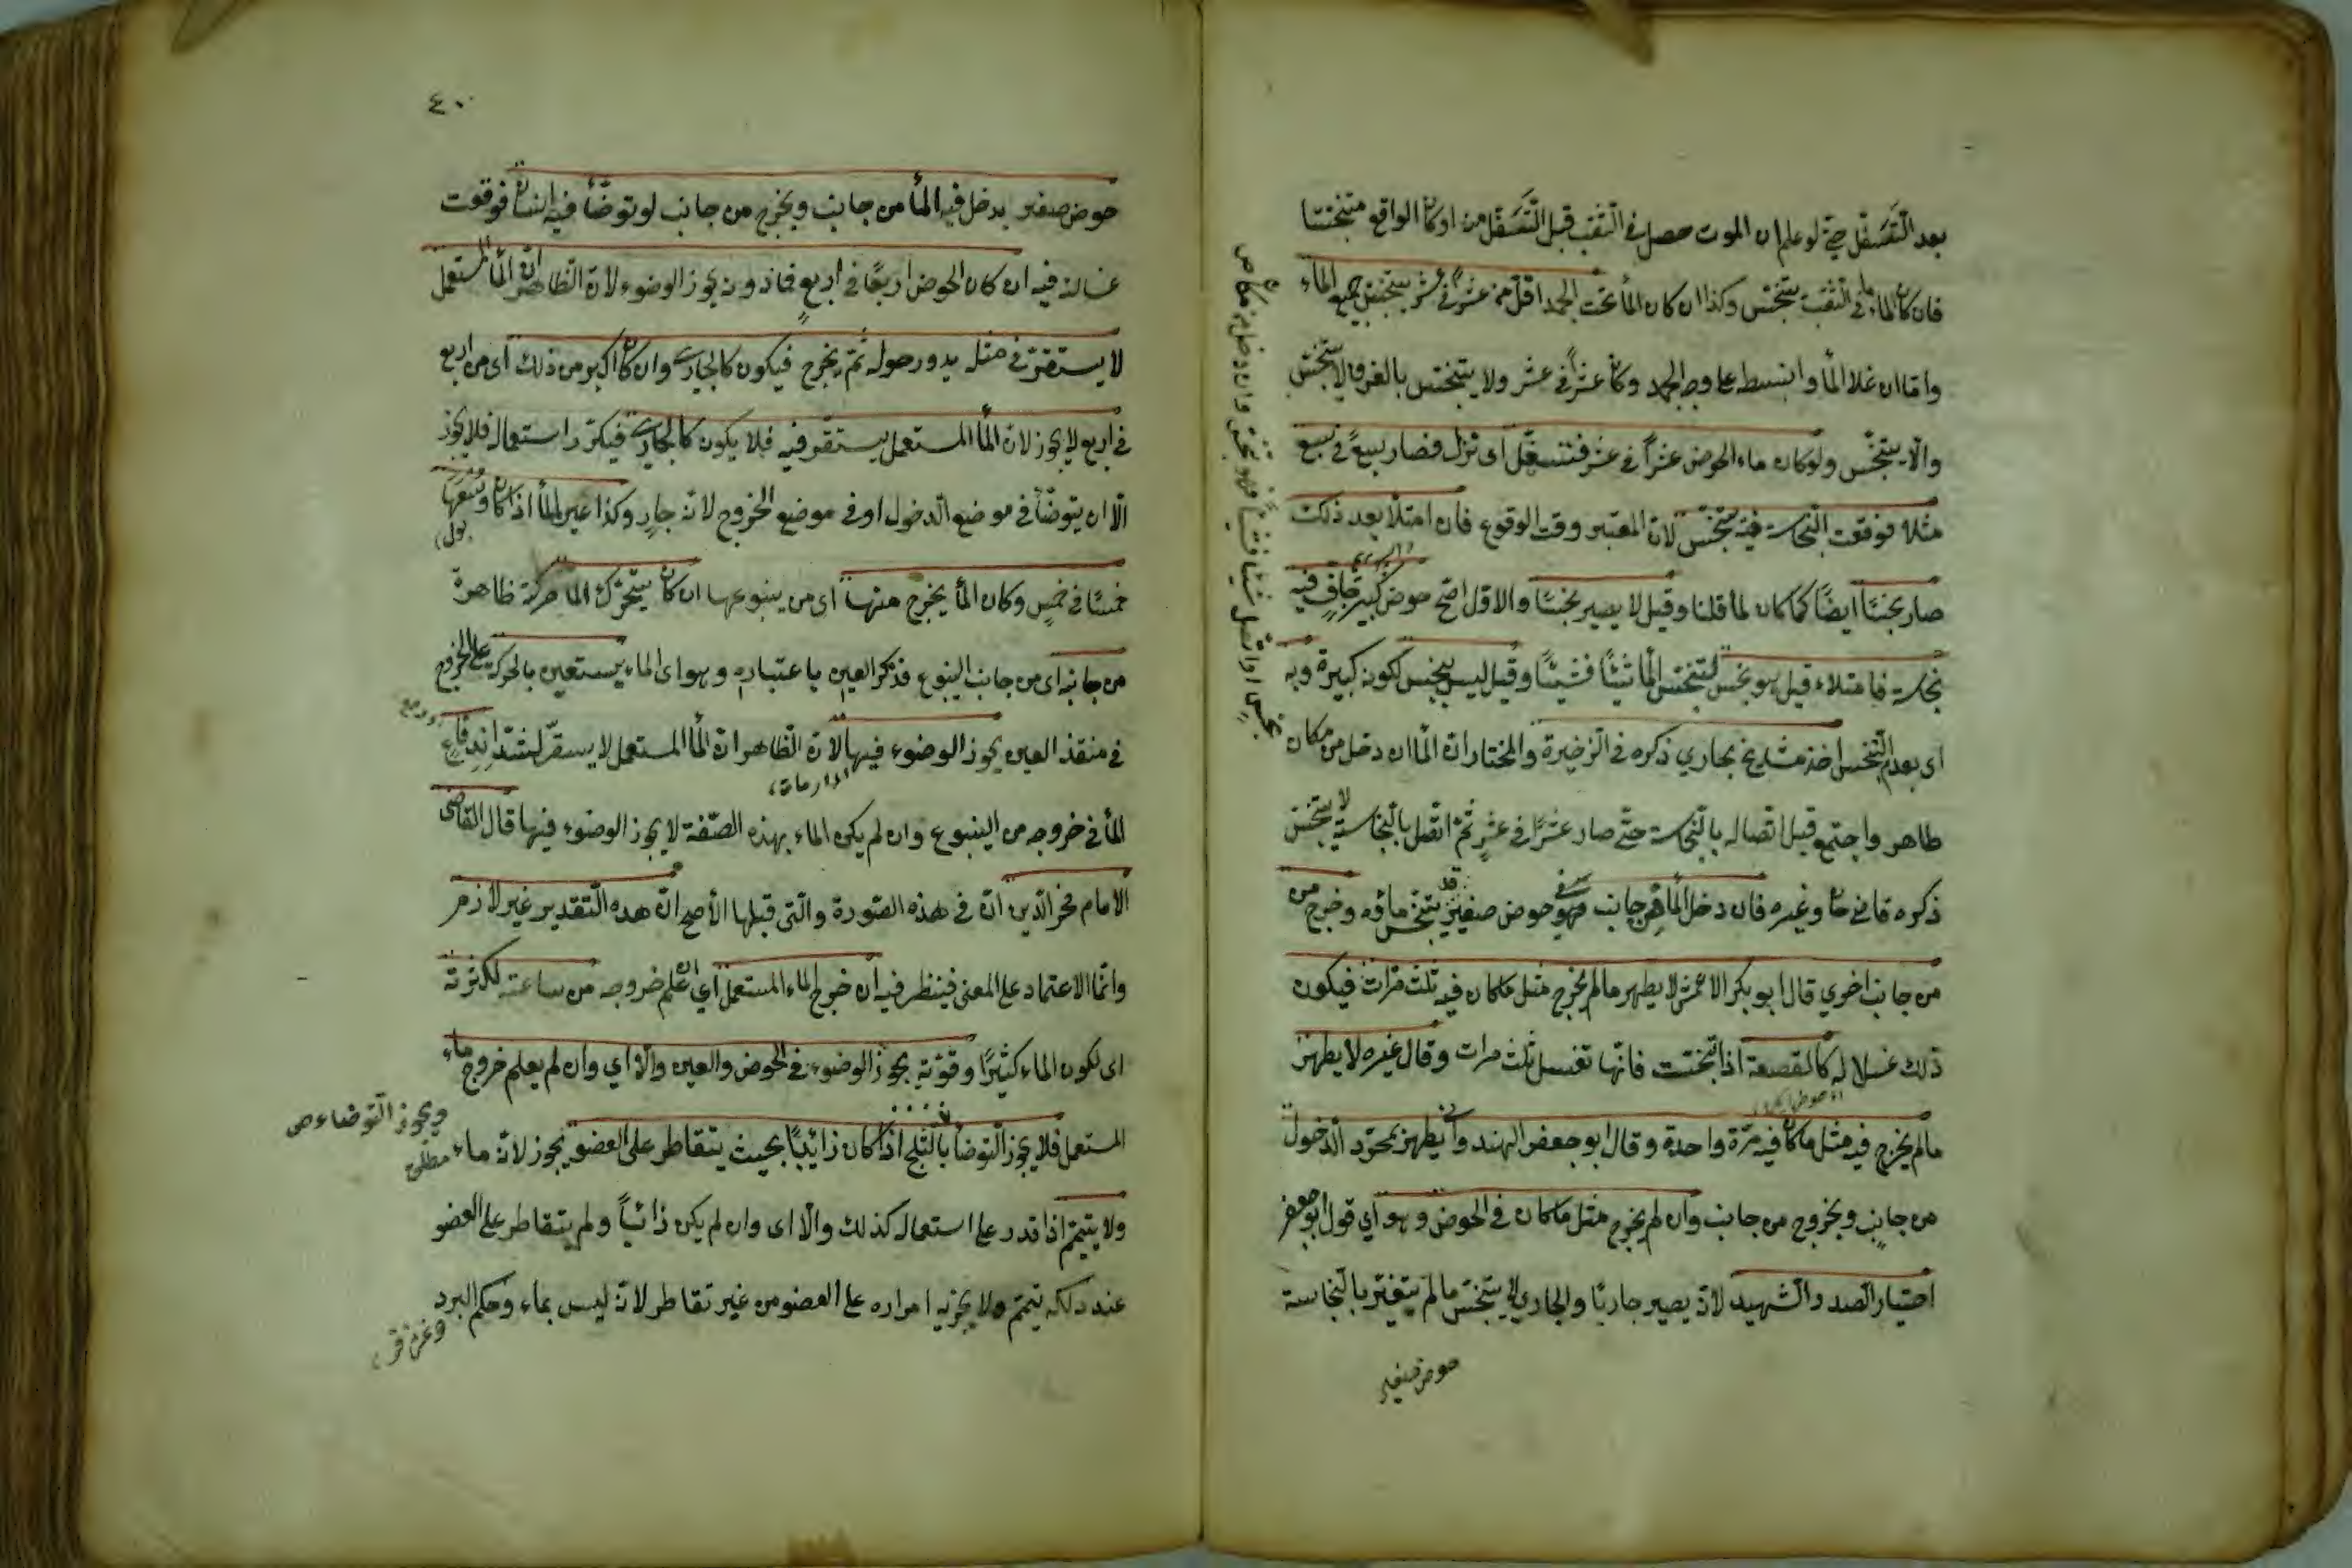 بعد التسفل حتى لو علم ان الموت حصل في الثقب قبل التسفل من اوكان الواقع متنجسا
فان كان الماء في الثقب يتنجس وكذا ان كان الماء تحت الجمد اقل من عشر في عشر يتنجس جميع الماء
واما ان غلا الماء وانبسط على وجه الجمد وكان عشراً في عشر ولا يتنجس بالغرف لا يتنجس
والا يتنجس ولوكان ماء الحوض عشراً في عشر فتسفل اى نزل فصار سبعاً في سبع
مثلا فوقعت النجاسة فيه يتنجس لان المعتبر وقت الوقوع فان امتلأ بعد ذلك
صار نجسًا ايضًا كما كان لما قلنا وقيل لا يصير نجسًا والاول اصح حوض كبير جاف فيه
نجاسة فامتلاء قيل هو نجس لتنجس الماء شيئًا فشيئًا وقيل ليس بنجس لكونه كبيرة وبه
اى بعدم التنجس اخذ مشايخ بخاري ذكره في الذخيرة والمختار ان الماء ان دخل من مكان
طاهر واجتمع قبل اتصاله بالنجاسة حتى صار عشرًا في عشر ثم اتصل بالنجاسة لا يتنجس
ذكره قاضي خا وغيره فان دخل الماء من جانب حوض صغير قد يتنجس ماؤه وخرج من
من جانب اخري قال ابو بكر الاعمش لا يطهر مالم يخرج مثل ماكان فيه ثلث مرات فيكون
ذلك غسلا له كالقصعة اذا تنجست فانها تغسل ثلث مرات وقال غيره لا يطهر
مالم يخرج فيه مثل ماكان فيه مرة واحدة وقال ابو جعفر الهندواني يطهر بمجرد الدخول
من جانب وبخروج من جانب وان لم يخرج مثل ماكان في الحوض وهو اي قول ابو جعفر
اختيار الصدر الشهيد لانه يصير جاريًا والجاري لا يتنجس مالم يتغير بالنجاسة
حوض صغير
٤٠
حوض صغير يدخل فيه الماء من جانب ويخرج من جانب لو توضأ فيه انسان فوقعت
غسالته فيه ان كان الحوض اربعًا في اربع فما دونه يجوز الوضوء لان الظاهر ان الماء المستعمل
لا يستقر في مثله يدور حوله ثم يخرج فيكون كالجاري وان كان اكبر من ذلك اى من اربع
في اربع لا يجوز لان الماء المستعمل يستقر فيه فلا يكون كالجاري فيكرر استعماله فلا يجوز
الا ان يتوضأ في موضع الدخول اوفي موضع الخروج لانه جارٍ وكذا عين الماء اذا كان وسعها
خمسًا في خمسٍ وكان الماء يخرج منها اى من ينبوعها ان كان يتحرك الماء حركة ظاهرة
من جانبه اى من جانب الينبوع فذكر العين باعتباره وهو اى الماء يستعين بالحركة على الخروج
في منفذ العين يجوز الوضوء فيها لان الظاهر ان الماء المستعمل لا يستقر لشدة اندفاع
الماء في خروجه من الينبوع وان لم يكن الماء بهذه الصفة لا يجوز الوضوء فيها قال القاضى
الامام فخر الدين ان في هذه الصورة والتى قبلها الأصح ان هذه التقدير غير لازم
وانما الاعتماد على المعنى فينظر فيه ان خرج الماء المستعمل اي ان علم خروجه من ساعته لكثرته
اى لكون الماء كثيرًا وقوته يجوز الوضوء في الحوض والعين والا اي وان لم يعلم خروج ماء
المستعمل فلا يجوز التوضأ بالثلج اذا كان ذائبًا بحيث يتقاطر على العضو يجوز لانه ماء
ويجوز التوضاء ص
مطلق
ولا يتيمم اذا قدر على استعماله كذلك والا اى وان لم يكن ذائباً ولم يتقاطر على العضو
عند دلكه تيمم ولا يجزيه امراره على العضو من غير تقاطر لانه ليس بماء وحكم البرد